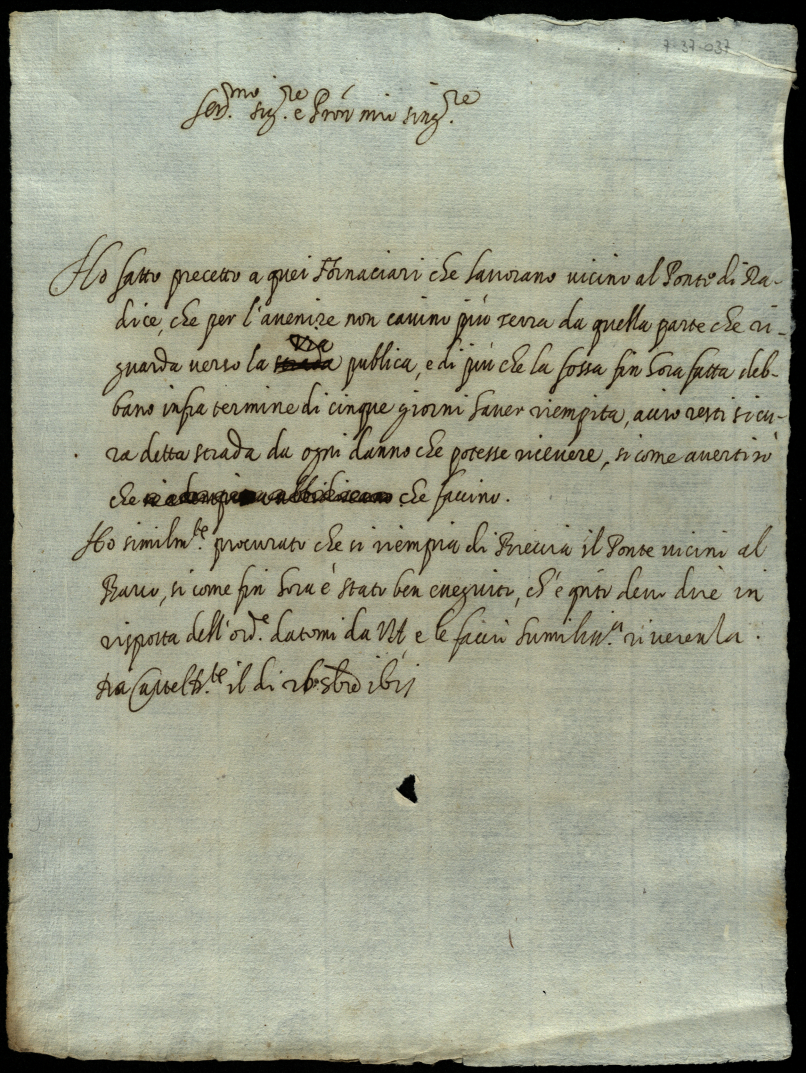 7-37-037
Ser.mo sig.re e Pron mio sing.re
Ho fatto precetto a quei Fornaciari che lavorano vicino al Ponte di Ra-
dice, che per l'avenire non cavino più terra da quella parte che ri-
guarda verso la strada Via publica, e di più che la fossa fin hora fatta deb-
bano infra termine di cinque giorni haver riempita, acciò resti sicu-
ra detta strada da ogni danno che potesse ricevere, si come avertirò
che che faccino.
Ho similm.te procurato che si riempia di Breccia il Ponte vicino al
si come fin hora è stato ben eseguito, ch'è q.nto devo dire in
risposta dell'ord.e datomi da VA, e le faccio humiliss.a riverenza.
Castelf.te il di